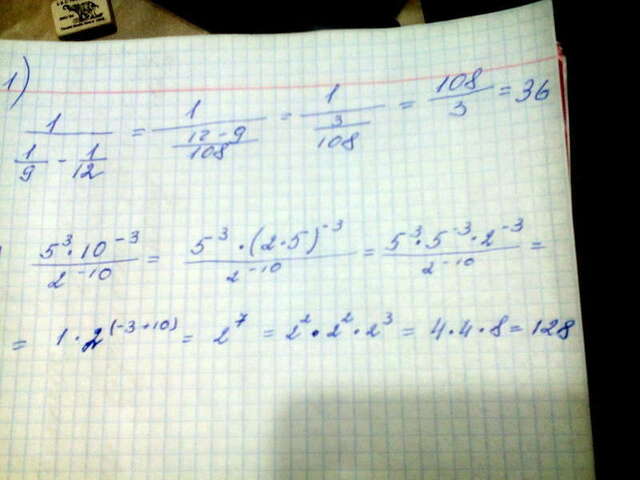 1)
1 / (1/9 - 1/12) = 1 / ((12-9)/108) = 1 / (3/108) = 108/3 = 36
(5³·10⁻³) / 2⁻¹⁰ = (5³·(2·5)⁻³) / 2⁻¹⁰ = (5³·5⁻³·2⁻³) / 2⁻¹⁰ =
= 1·2⁽⁻³⁺¹⁰⁾ = 2⁷ = 2²·2²·2³ = 4·4·8 = 128